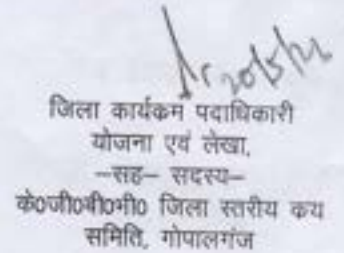 20/5/22
जिला कार्यक्रम पदाधिकारी
योजना एवं लेखा,
–सह– सदस्य–
के0जी0बी0भी0 जिला स्तरीय क्रय
समिति, गोपालगंज